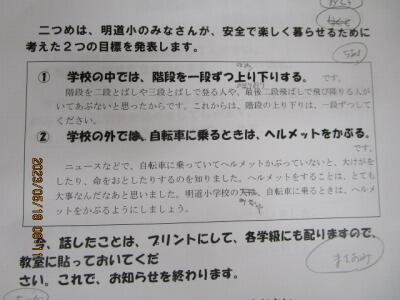 二つめは、明道小のみなさんが、安全で楽しく暮らせるために
考えた２つの目標を発表します。
① 学校の中では、階段を一段ずつ上り下りする。 です。
階段を二段とばしや三段とばしで登る人や、最後二段飛ばしで飛び降りる人が
いてあぶないと思ったからです。これからは、階段の上り下りは、一段ずつして
ください。
② 学校の外では、自転車に乗るときは、ヘルメットをかぶる。
です。
ニュースなどで、自転車に乗っていてヘルメットかぶっていないと、大けがを
したり、命をおとしたりするのを知りました。ヘルメットをすることは、とても
大事なんだなあと思いました。明道小学校の 、自転車に乗るときは、ヘルメ
ットをかぶるようにしましょう。
今、話したことは、プリントにして、各学級にも配りますので、
教室に貼っておいてくだ
さい。これで、お知らせを終わります。